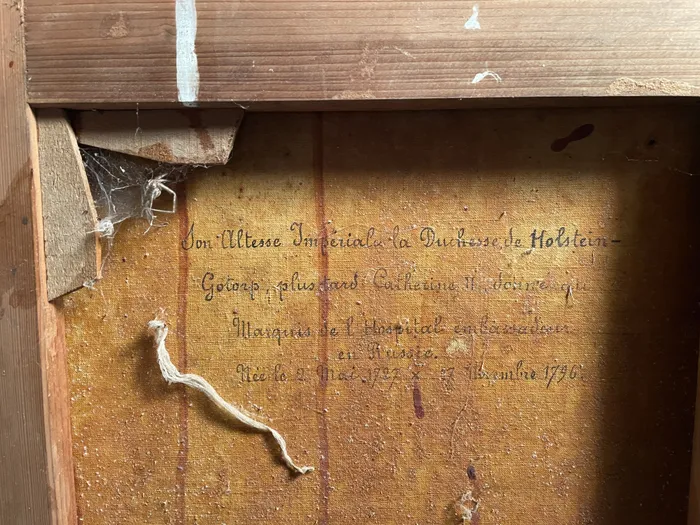 Son Altesse Impériale la Duchesse de Holstein-
Gotorp, plus tard Catherine II, donné
Marquis de l'Hospital embassadeur
en Russie.
Née le 2 Mai 1727 x 17 Novembre 1796